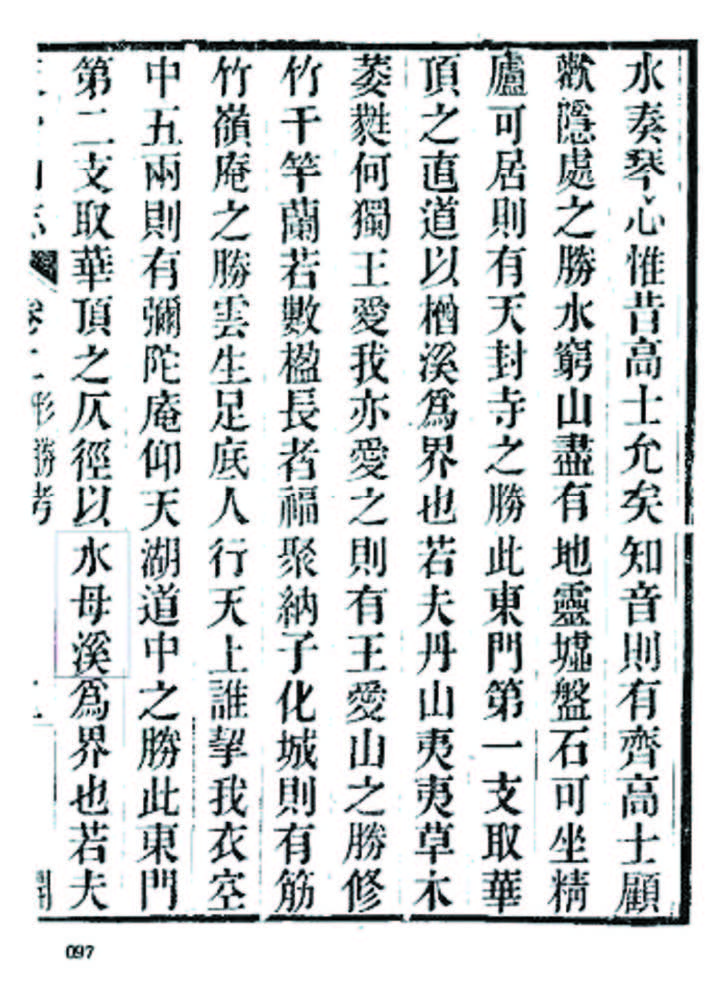 水奏琴心惟昔高士允矣知音則有齊高士顧
歡隱處之勝水窮山盡有地靈墟盤石可坐精
廬可居則有天封寺之勝此東門第一支取華
頂之直道以楢溪爲界也若夫丹山夷夷草木
萎蕤何獨王愛我亦愛之則有王愛山之勝修
竹千竿蘭若數楹長者福聚納子化城則有筋
竹嶺庵之勝雲生足底人行天上誰挈我衣空
中五兩則有彌陀庵仰天湖道中之勝此東門
第二支取華頂之仄徑以水母溪爲界也若夫
形勝考
097